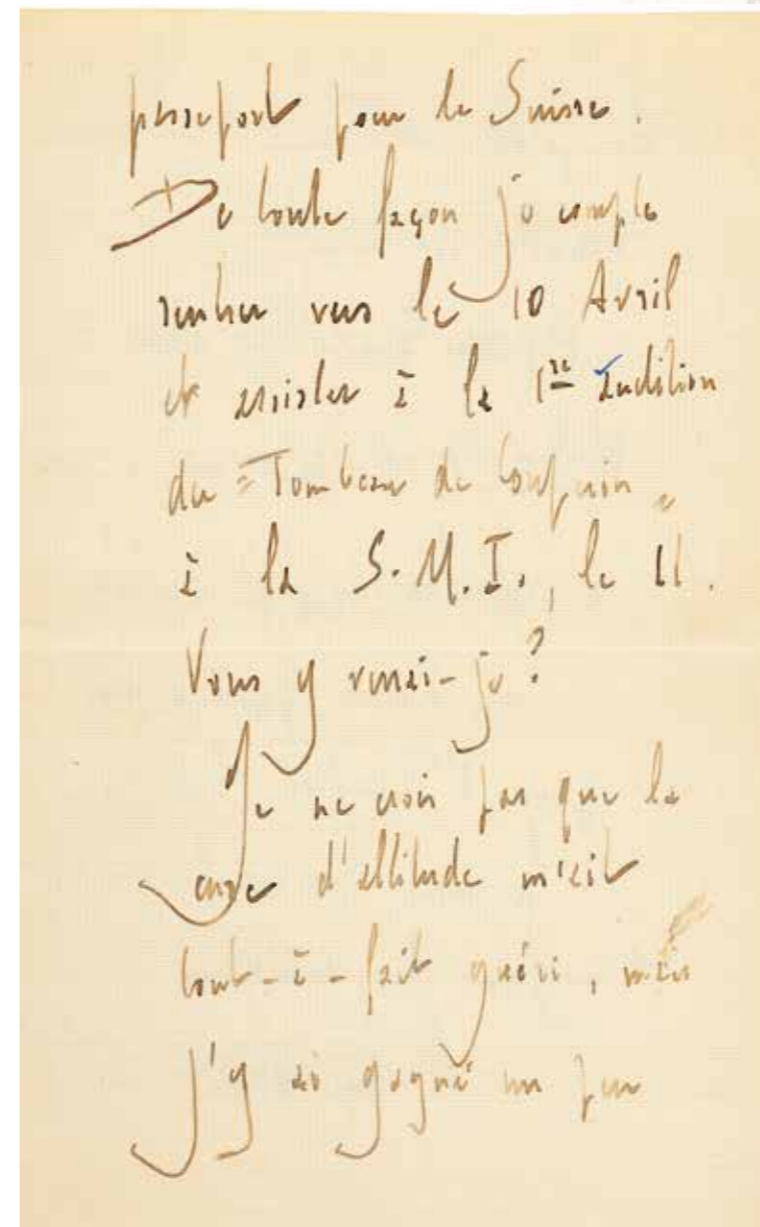 passeport pour la Suisse.
De toute façon je compte
rentrer vers le 10 Avril
et assister à la 1re audition
du "Tombeau de Couperin"
à la S.M.I., le 11.
Vous y verrai-je?
Je ne crois pas que la
cure d'altitude m'ait
tout-à-fait guéri, mais
j'y ai gagné un peu